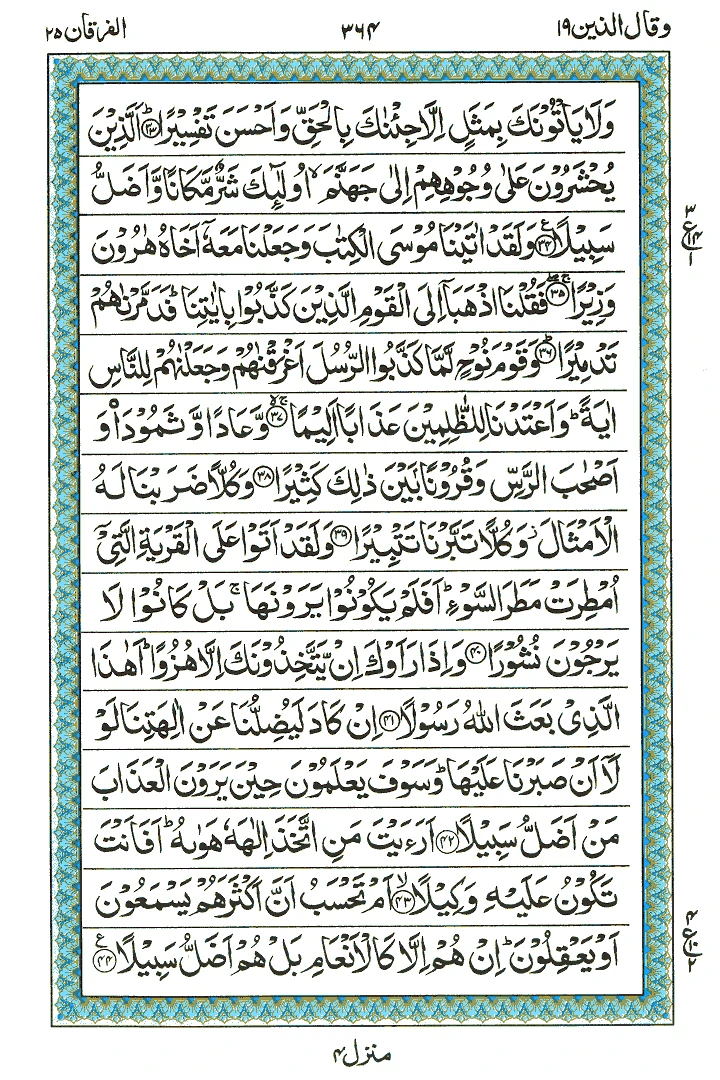 وقال الذين ١٩ ٣٦٤ الفرقان ٢٥
وَلَا يَاْتُوْنَكَ بِمَثَلٍ اِلَّا جِئْنٰكَ بِالْحَقِّ وَاَحْسَنَ تَفْسِيْرًا ؕ﴿٣٣﴾ اَلَّذِيْنَ
يُحْشَرُوْنَ عَلٰى وُجُوْهِهِمْ اِلٰى جَهَنَّمَ ۙ اُولٰٓئِكَ شَرٌّ مَّكَانًا وَّاَضَلُّ
سَبِيْلًا ﴿٣٤﴾ؑ وَلَقَدْ اٰتَيْنَا مُوْسَى الْكِتٰبَ وَجَعَلْنَا مَعَهٗۤ اَخَاهُ هٰرُوْنَ
وَزِيْرًا ﴿٣٥﴾ۚۖ فَقُلْنَا اذْهَبَاۤ اِلَى الْقَوْمِ الَّذِيْنَ كَذَّبُوْا بِاٰيٰتِنَا ؕ فَدَمَّرْنٰهُمْ
تَدْمِيْرًا ؕ﴿٣٦﴾ وَقَوْمَ نُوْحٍ لَّمَّا كَذَّبُوا الرُّسُلَ اَغْرَقْنٰهُمْ وَجَعَلْنٰهُمْ لِلنَّاسِ
اٰيَةً ؕ وَاَعْتَدْنَا لِلظّٰلِمِيْنَ عَذَابًا اَلِيْمًا ﴿٣٧﴾ۚۙ وَّعَادًا وَّثَمُوْدَا۟ وَ
اَصْحٰبَ الرَّسِّ وَقُرُوْنًۢا بَيْنَ ذٰلِكَ كَثِيْرًا ﴿٣٨﴾ وَكُلًّا ضَرَبْنَا لَهُ
الْاَمْثَالَ ؗ وَكُلًّا تَبَّرْنَا تَتْبِيْرًا ﴿٣٩﴾ وَلَقَدْ اَتَوْا عَلَى الْقَرْيَةِ الَّتِيْۤ
اُمْطِرَتْ مَطَرَ السَّوْءِ ؕ اَفَلَمْ يَكُوْنُوْا يَرَوْنَهَا ۚ بَلْ كَانُوْا لَا
يَرْجُوْنَ نُشُوْرًا ﴿٤٠﴾ وَاِذَا رَاَوْكَ اِنْ يَّتَّخِذُوْنَكَ اِلَّا هُزُوًا ؕ اَهٰذَا
الَّذِيْ بَعَثَ اللّٰهُ رَسُوْلًا ﴿٤١﴾ اِنْ كَادَ لَيُضِلُّنَا عَنْ اٰلِهَتِنَا لَوْ
لَاۤ اَنْ صَبَرْنَا عَلَيْهَا ؕ وَسَوْفَ يَعْلَمُوْنَ حِيْنَ يَرَوْنَ الْعَذَابَ
مَنْ اَضَلُّ سَبِيْلًا ﴿٤٢﴾ اَرَءَيْتَ مَنِ اتَّخَذَ اِلٰهَهٗ هَوٰىهُ ؕ اَفَاَنْتَ
تَكُوْنُ عَلَيْهِ وَكِيْلًا ﴿٤٣﴾ۙ اَمْ تَحْسَبُ اَنَّ اَكْثَرَهُمْ يَسْمَعُوْنَ
اَوْ يَعْقِلُوْنَ ؕ اِنْ هُمْ اِلَّا كَالْاَنْعَامِ بَلْ هُمْ اَضَلُّ سَبِيْلًا ﴿٤٤﴾ؑ
منزل ٤